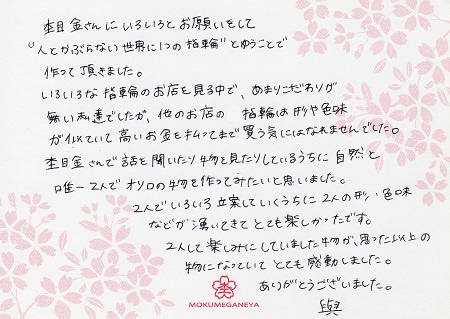 杢目金さんにいろいろとお願いをして
"人とかぶらない世界に1つの指輪"とゆうことで
作って頂きました。
いろいろな指輪のお店を見る中で、あまりこだわりが
無い私達でしたが、他のお店の 指輪は形や色味
が似ていて高いお金を払ってまで買う気にはなれませんでした。
杢目金さんで話を聞いたり物を見たりしているうちに自然と
唯一2人でオリジの物を作ってみたいと思いました。
2人でいろいろ立案していくうちに2人の形・色味
などが湧いてきてとても楽しかったです。
2人して楽しみにしていました物が、思った以上の
物になっていてとても感動しました。
ありがとうございました。
MOKUMEGANEYA